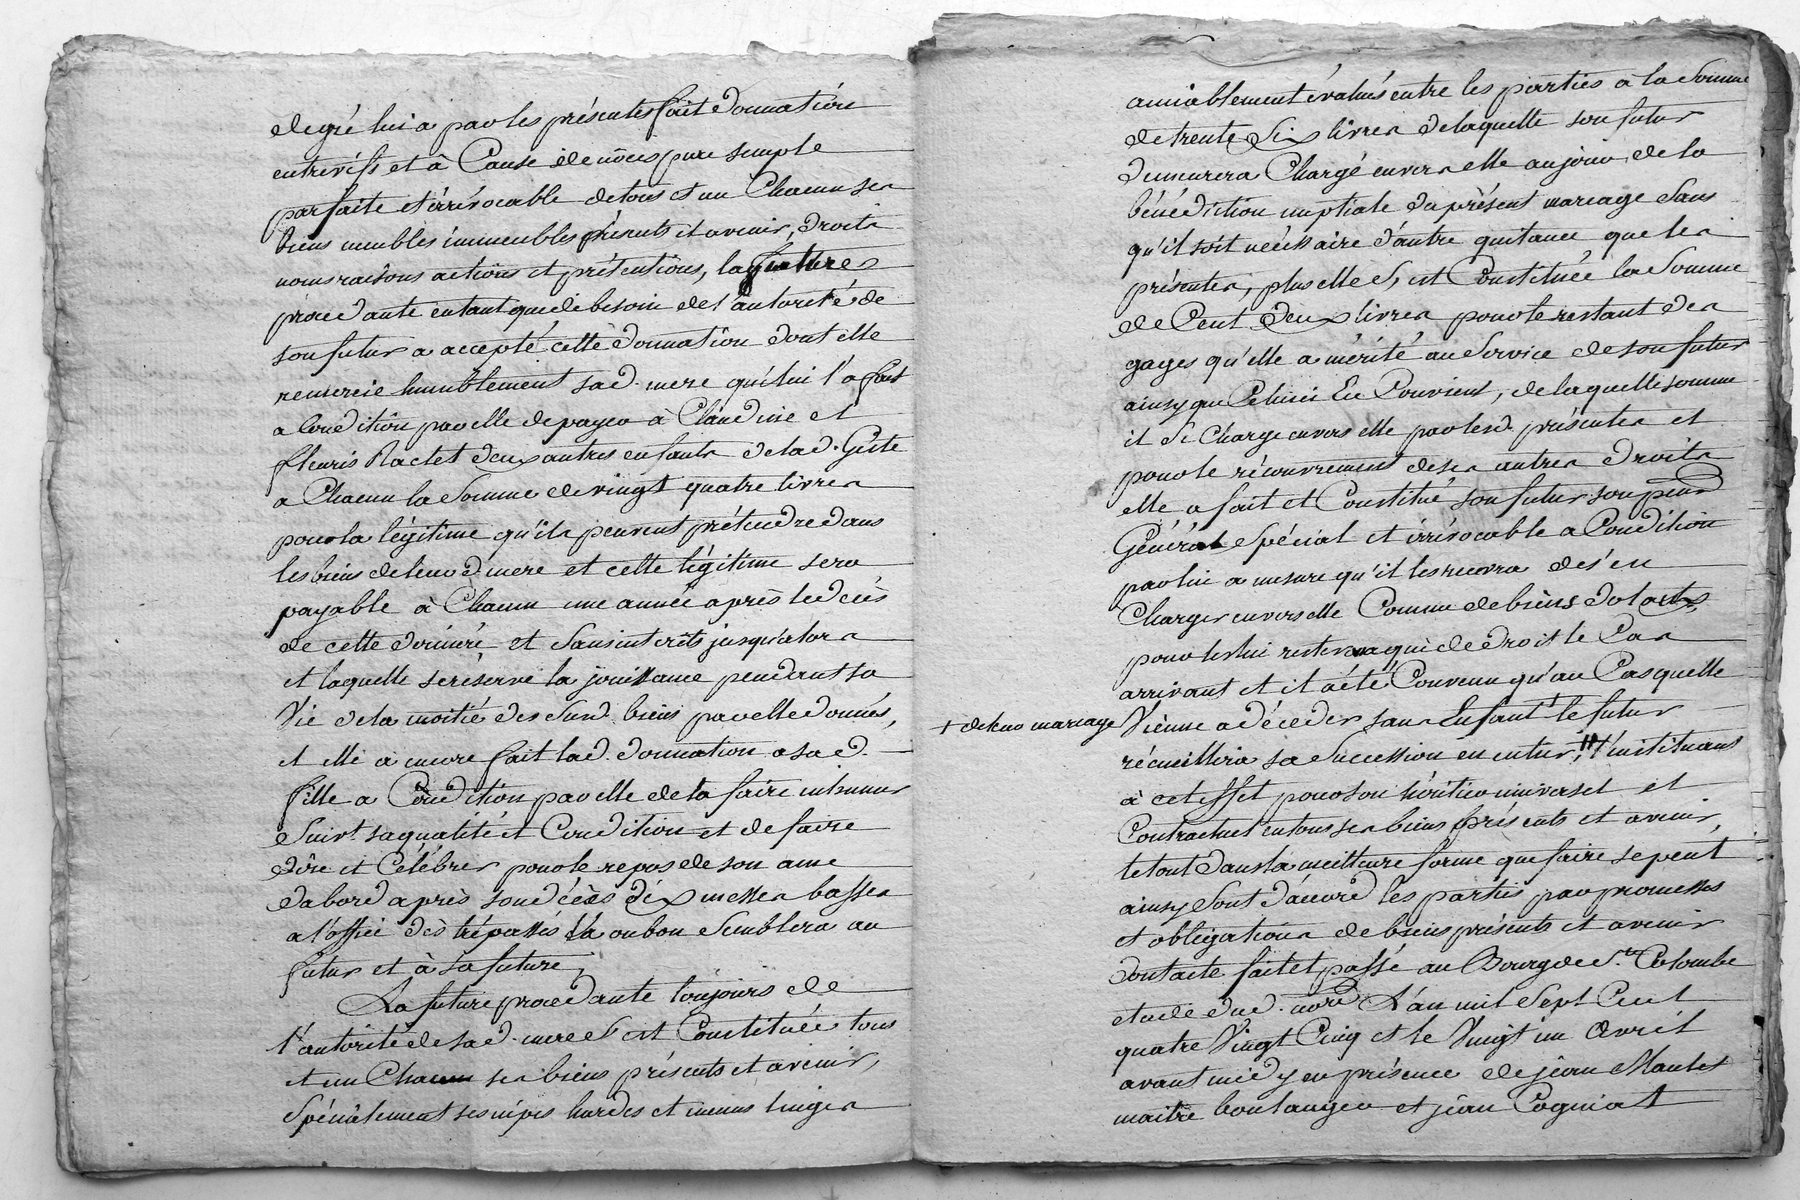 de gré lui a par les présentes fait donnation
entrevifs et à Cause de nôces pure simple
parfaite et irrévocable de tous et un Chacun ses
biens meubles immeubles présents et avenir, droits
noms raisons actions et prétentions, la future
procedante entant que de besoin de l'autorité de
son futur a accepté cette donnation dont elle
remercie humblement sad. mere qui lui l'a fait
a Condition par elle de payer à Claudine et
fleuris Raclet deux autres enfants de lad. Giste
a Chacun la Somme de vingt quatre livres
pour la légitime qu'ils peuvent prétendre dans
les biens de leurd. mere et cette légitime sera
payable à Chacun une année après le décès
de cette derniere et Sans interêts jusqu'alors
et laquelle se réserve la jouissance pendant sa
Vie de la moitié des Susd. biens par elle donnés,
et elle a encore fait lad. donnation a sad.
fille a Condition par elle de la faire inhumer
Suivt. sa qualité et Condition et de faire
dire et Célébrer pour le repos de son ame
dabord après son décès dix messes basses
a l'office des trépassés là ou bon Semblera au
futur et à sa future,
La future procedante toujours de
l'autorité de sad. mere S'est Constituée tous
et un Chacun ses biens présents et avenir,
Spécialement ses nipes hardes et menus linges
amiablement évalués entre les parties à la Somme
de trente Six livres de laquelle son futur
demeurera Chargé envers elle au jour de la
bénédiction nuptiale du présent mariage Sans
qu'il soit nécéssaire d'autre quitance que les
présentes, plus elle S'est Constituée la Somme
de Cent deux livres pour le restant des
gages qu'elle a mérité au Service de son futur
ainsy que Celuici En Convient, de laquelle somme
il Se Charge envers elle par lesd. présentes et
pour le récouvrement de ses autres droits
elle a fait et Constitué son futur son
Général Spécial et irrévocable a Condition
par lui a mesure qu'il les recevra de s'en
Charger envers elle Comme de biens dotaux
pour les lui rester que de droit le Cas
arrivant et il a été Convenu qu'au Cas quelle
+ de leur mariage
Vienne a décéder sans Enfant + le futur
récueillira sa Succession en entier, l'instituant
à cet effet pour son héritier universel et
Contractuel en tous ses biens présents et avenir,
le tout dans la meilleure forme que faire se peut
ainsy Sont d'accord les parties par promesses
et obligations de biens présents et avenir
dont acte fait et passé au Bourg de Ste. Colombe
etude dud. nore. L'an mil Sept Cent
quatre Vingt Cinq et le Vingt un Avril
avant midy en présence de jean Maulet
maitre boulanger et jean Cogniat